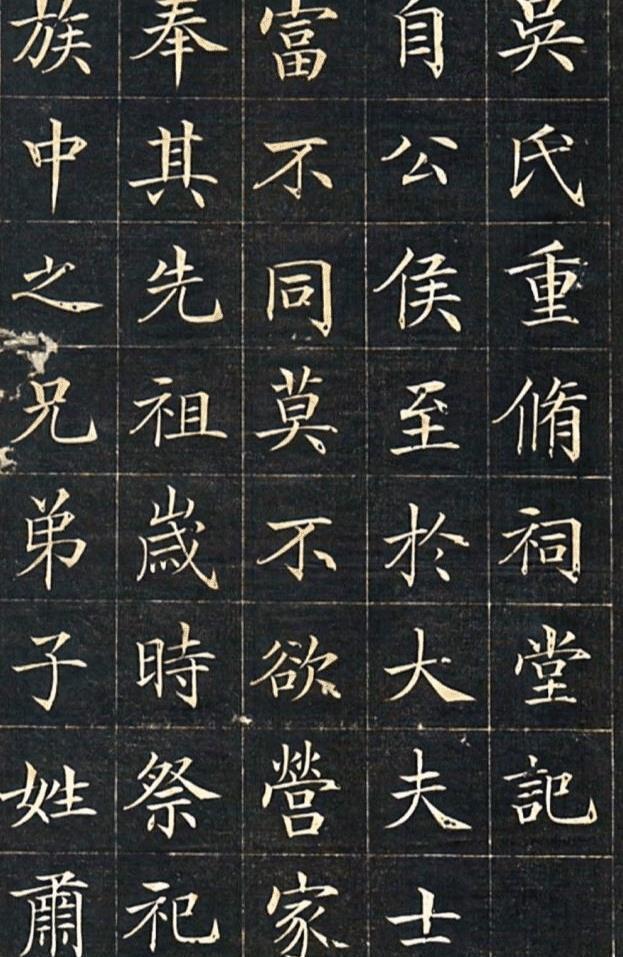 吳氏重脩祠堂記
自公侯至於大夫士
富不同莫不欲營家
奉其先祖歲時祭祀
族中之兄弟子姓肅